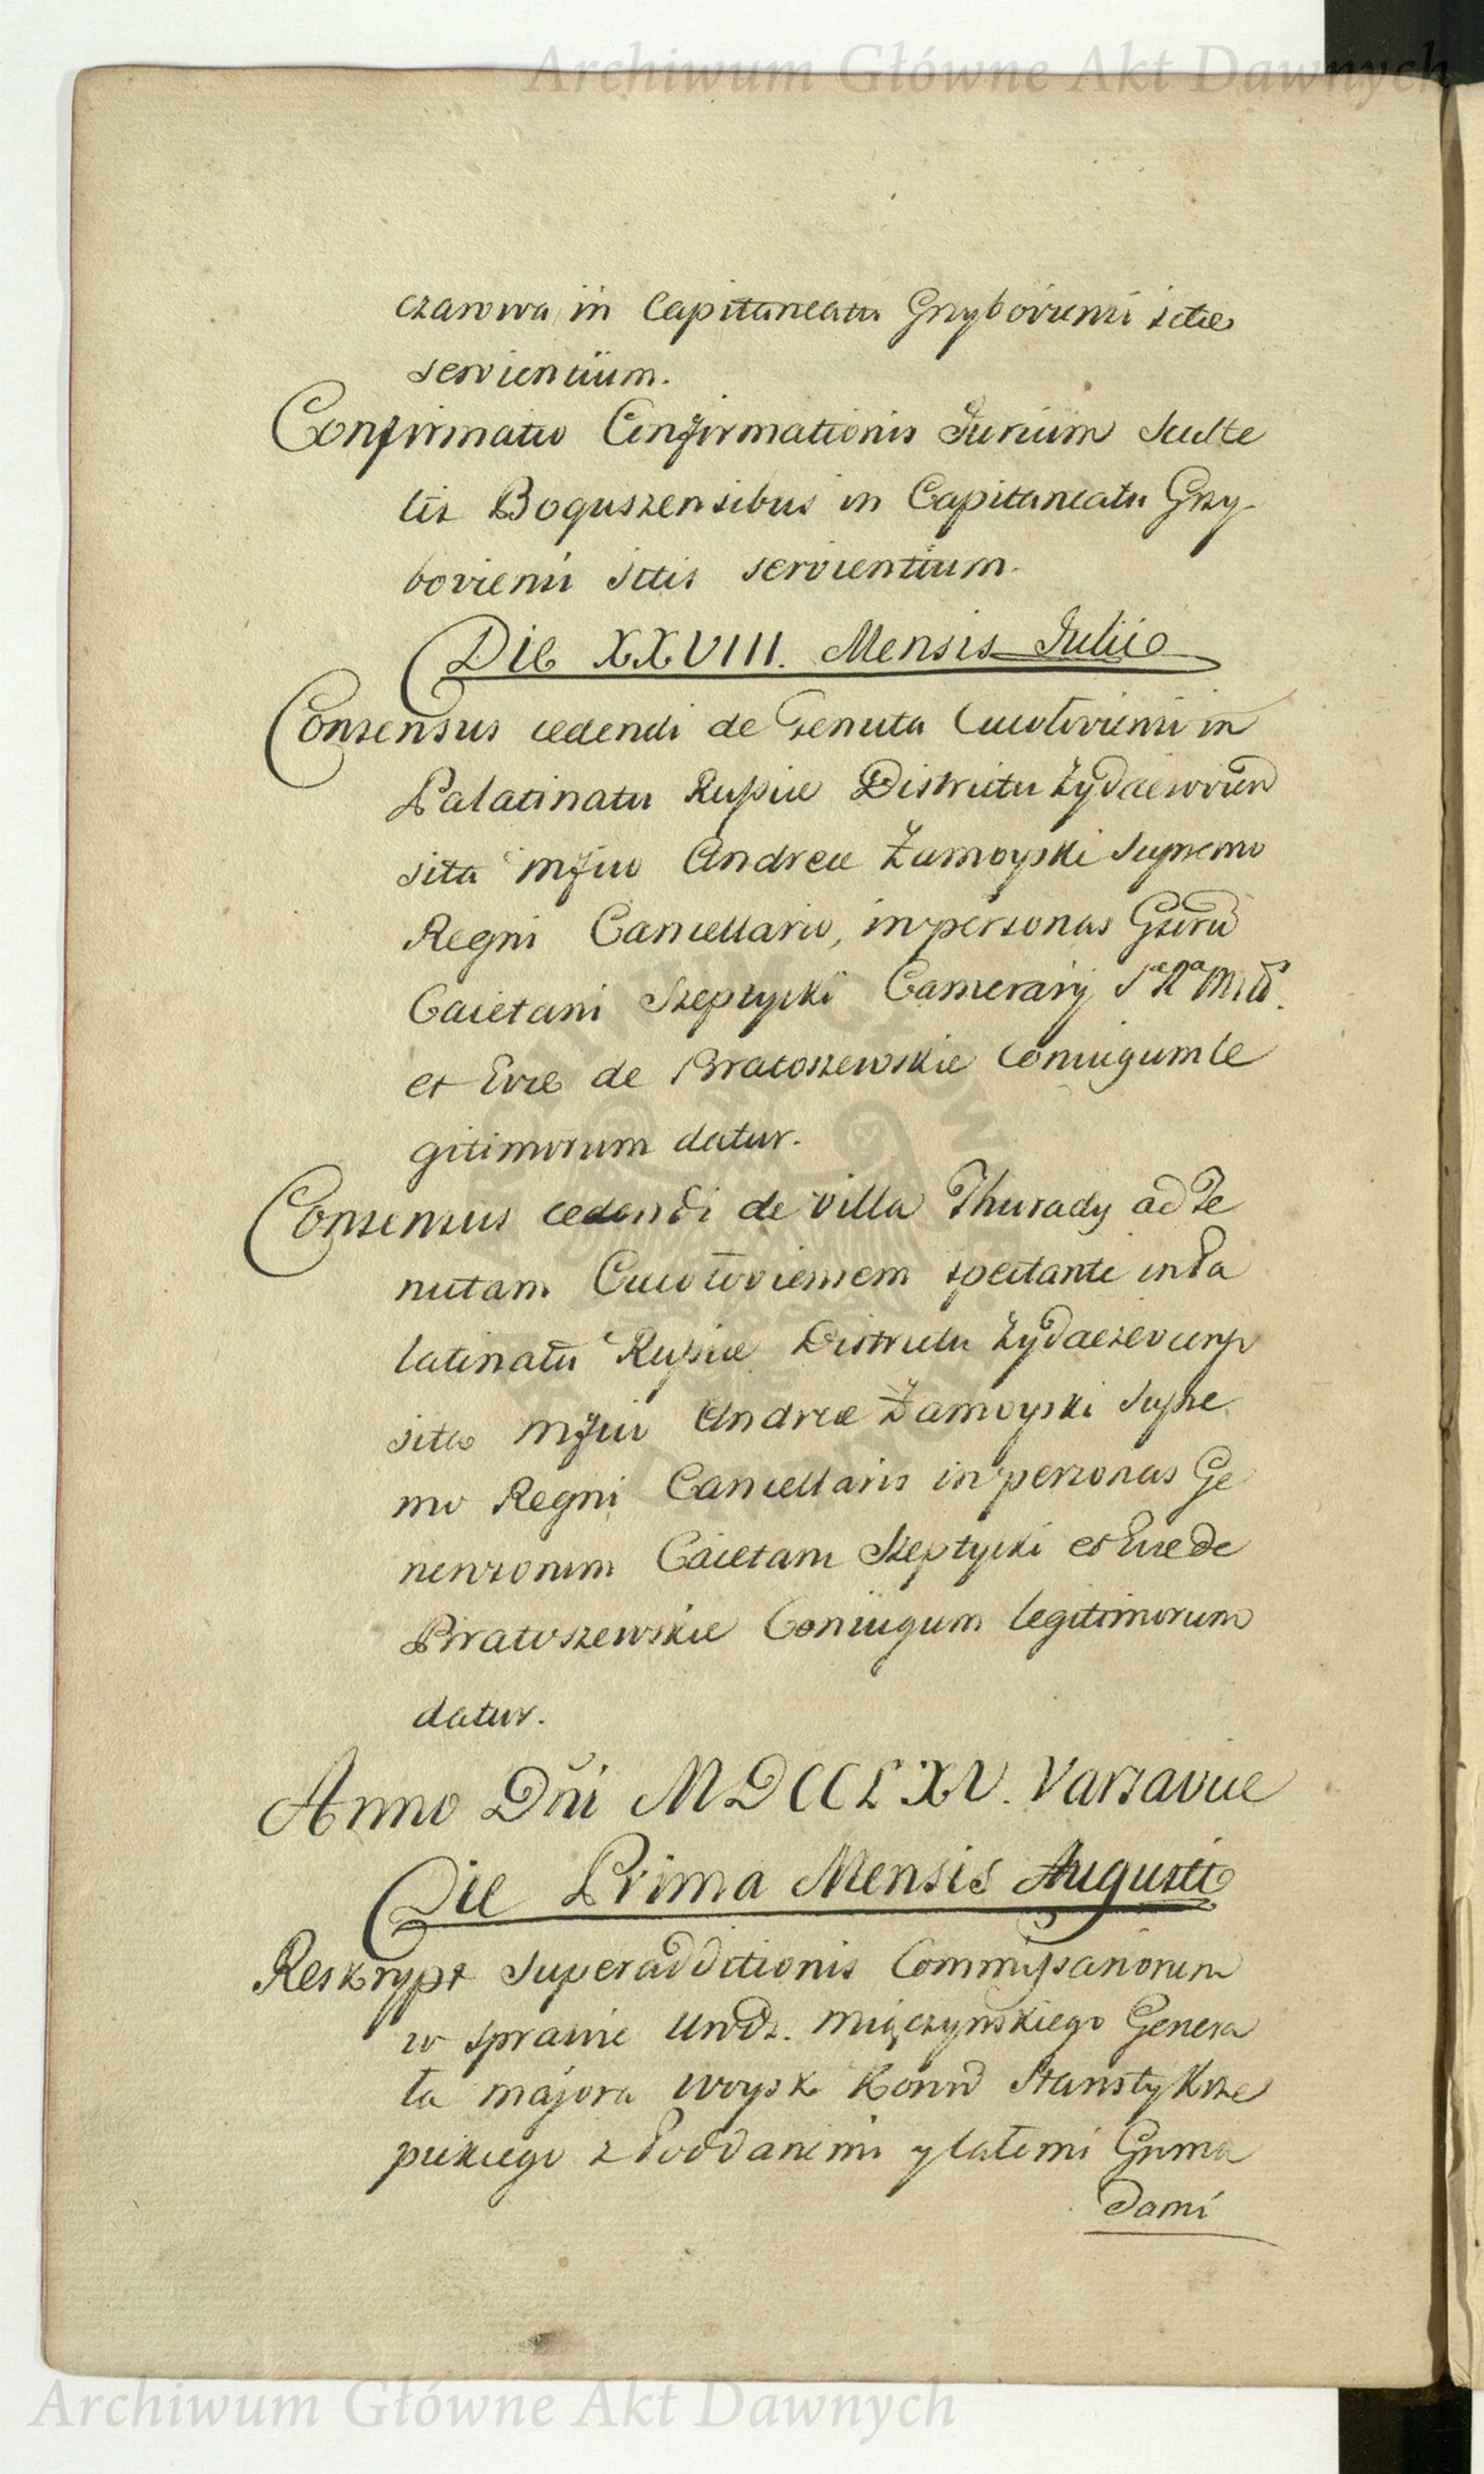 Archiwum Główne Akt Dawnych
czarowa in Capitaneatu Gryboviensi sitæ
servientium.
Confirmatio Confirmationis Jurium Sculte
tis Boguszensibus in Capitaneatu Gry-
boviensi sitis servientium.
Die XXVIII. Mensis Julii
Consensus cedendi de Tenuta Cucoloviensi in
Palatinatu Russiæ Districtu Zydaczovien
sita Mfico Andreæ Zamoyski Supremo
Regni Cancellario, in personas Gnrũ
Caietani Szeptycki Camerarij S R Mtis.
et Evæ de Bratoszewskie Coniugum le
gitimorum datur.
Consensus cedendi de Villa Thurady ad Te
nutam Cucoloviensem spectante in Pa
latinatu Russiæ Districtu Zydaczoviensi
sita Mfico Andreæ Zamoyski Supre
mo Regni Cancellario in personas Ge
nerosorum Caietani Szeptycki et Evæ de
Bratoszewskie Coniugum legitimorum
datur.
Anno Dñi MDCCLXV. Varsaviæ
Die Prima Mensis Augusti
Reskrypt Superadditionis Commissariorum
w sprawie Urodz. Miączyńskiego Genera
ła majora woysk Koron Starosty Krze
pickiego z Poddanemi y całemi Groma
dami
Archiwum Główne Akt Dawnych